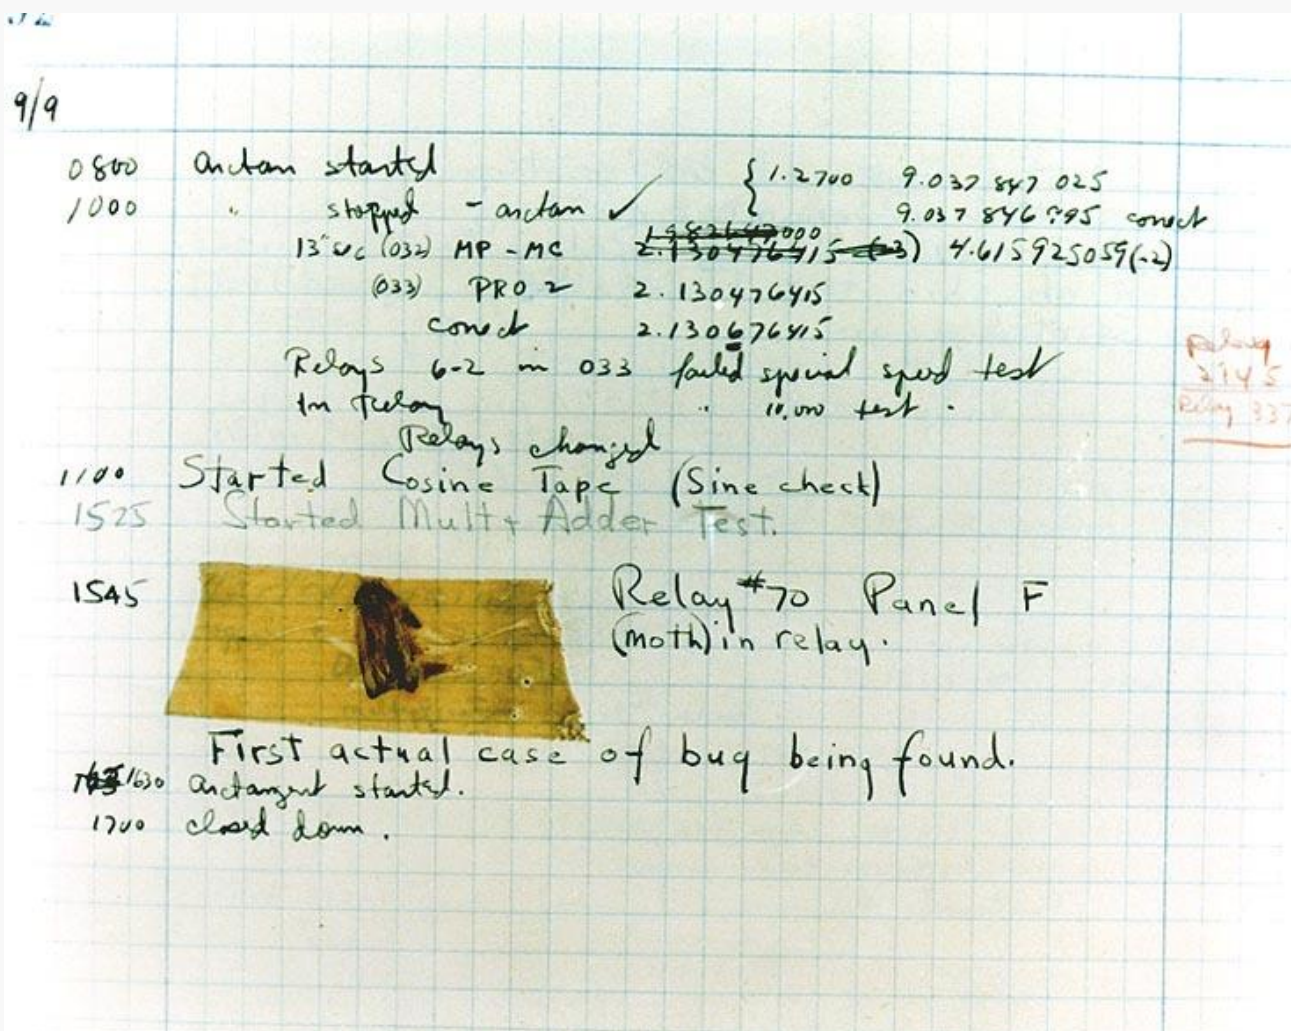 9/9
0800 arctan started { 1.2700 9.037 847 025
1000 " stopped - arctan ✓ 9.037 846 995 correct
13"uc (032) MP - MC 2.130476415 4.615925059(-2)
(033) PRO 2 2.130476415
correct 2.130676415
Relays 6-2 in 033 failed special speed test
In relay " 10.000 test .
Relays changed
1100 Started Cosine Tape (Sine check)
1525 Started Mult + Adder Test.
1545 Relay #70 Panel F
(moth) in relay.
First actual case of bug being found.
1630 arctangent started.
1700 closed down.
Relay
2145
Relay 337